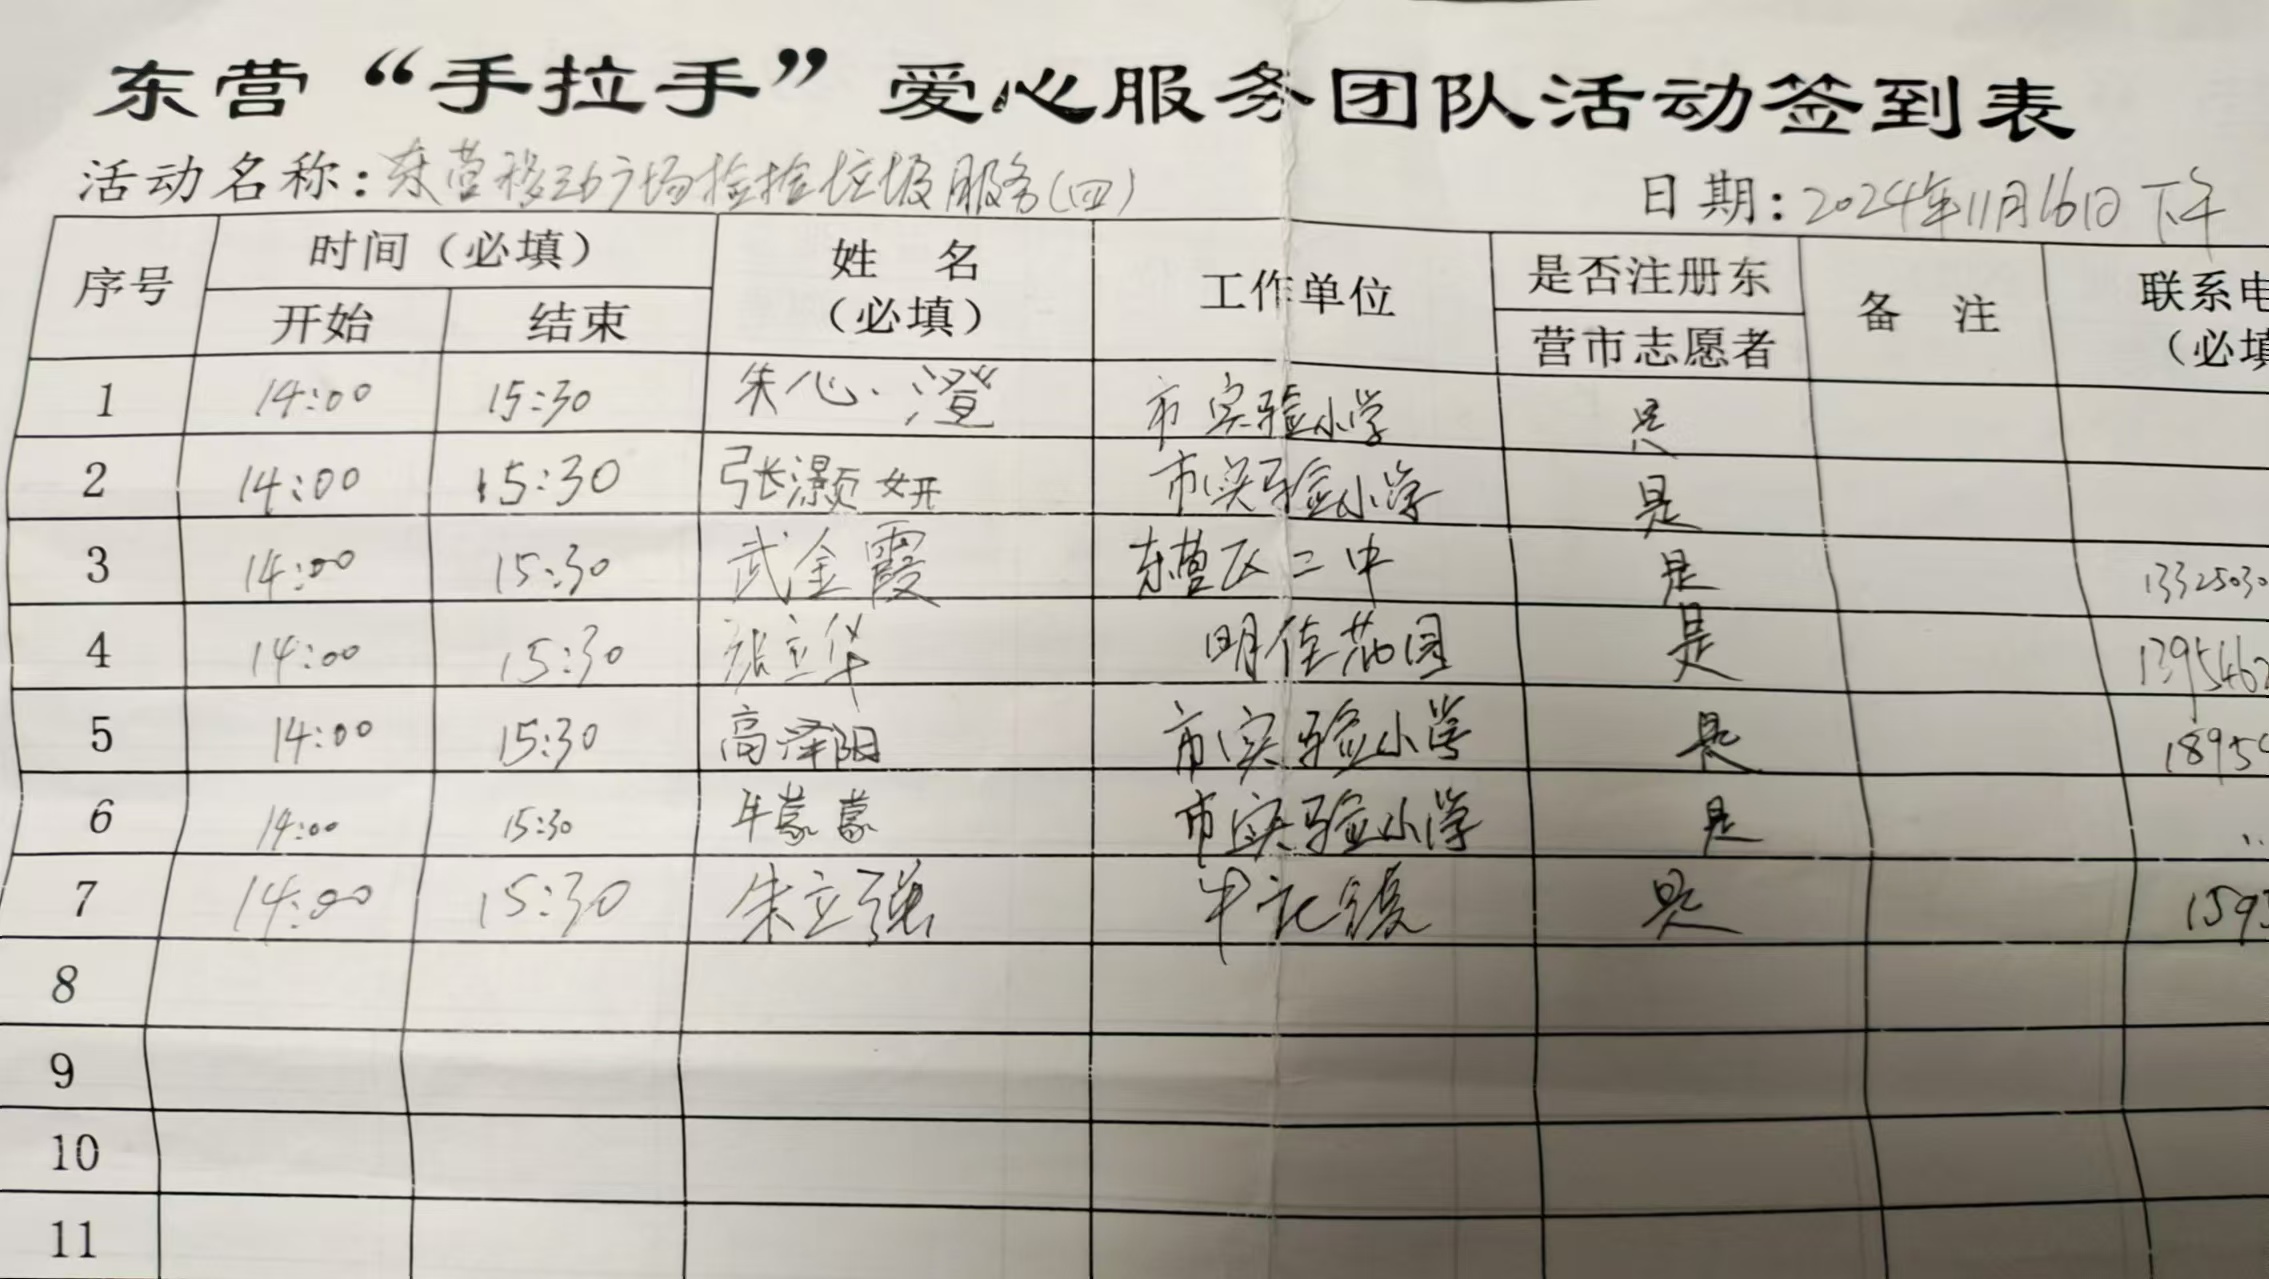 东营“手拉手”爱心服务团队活动签到表
活动名称：东营移动广场捡捡垃圾服务(四) 日期：2024年11月16日下午
序号 时间（必填） 姓 名（必填） 工作单位 是否注册东营市志愿者 备 注 联系电（必填
开始 结束
1 14:00 15:30 朱心澄 市实验小学 是
2 14:00 15:30 张灏妍 市实验小学 是
3 14:00 15:30 武金霞 东营区二中 是 1332503
4 14:00 15:30 张立华 明佳花园 是 1395462
5 14:00 15:30 高泽阳 市实验小学 是 1895
6 14:00 15:30 牛蒙蒙 市实验小学 是
7 14:00 15:30 朱立强 是 159
8
9
10
11